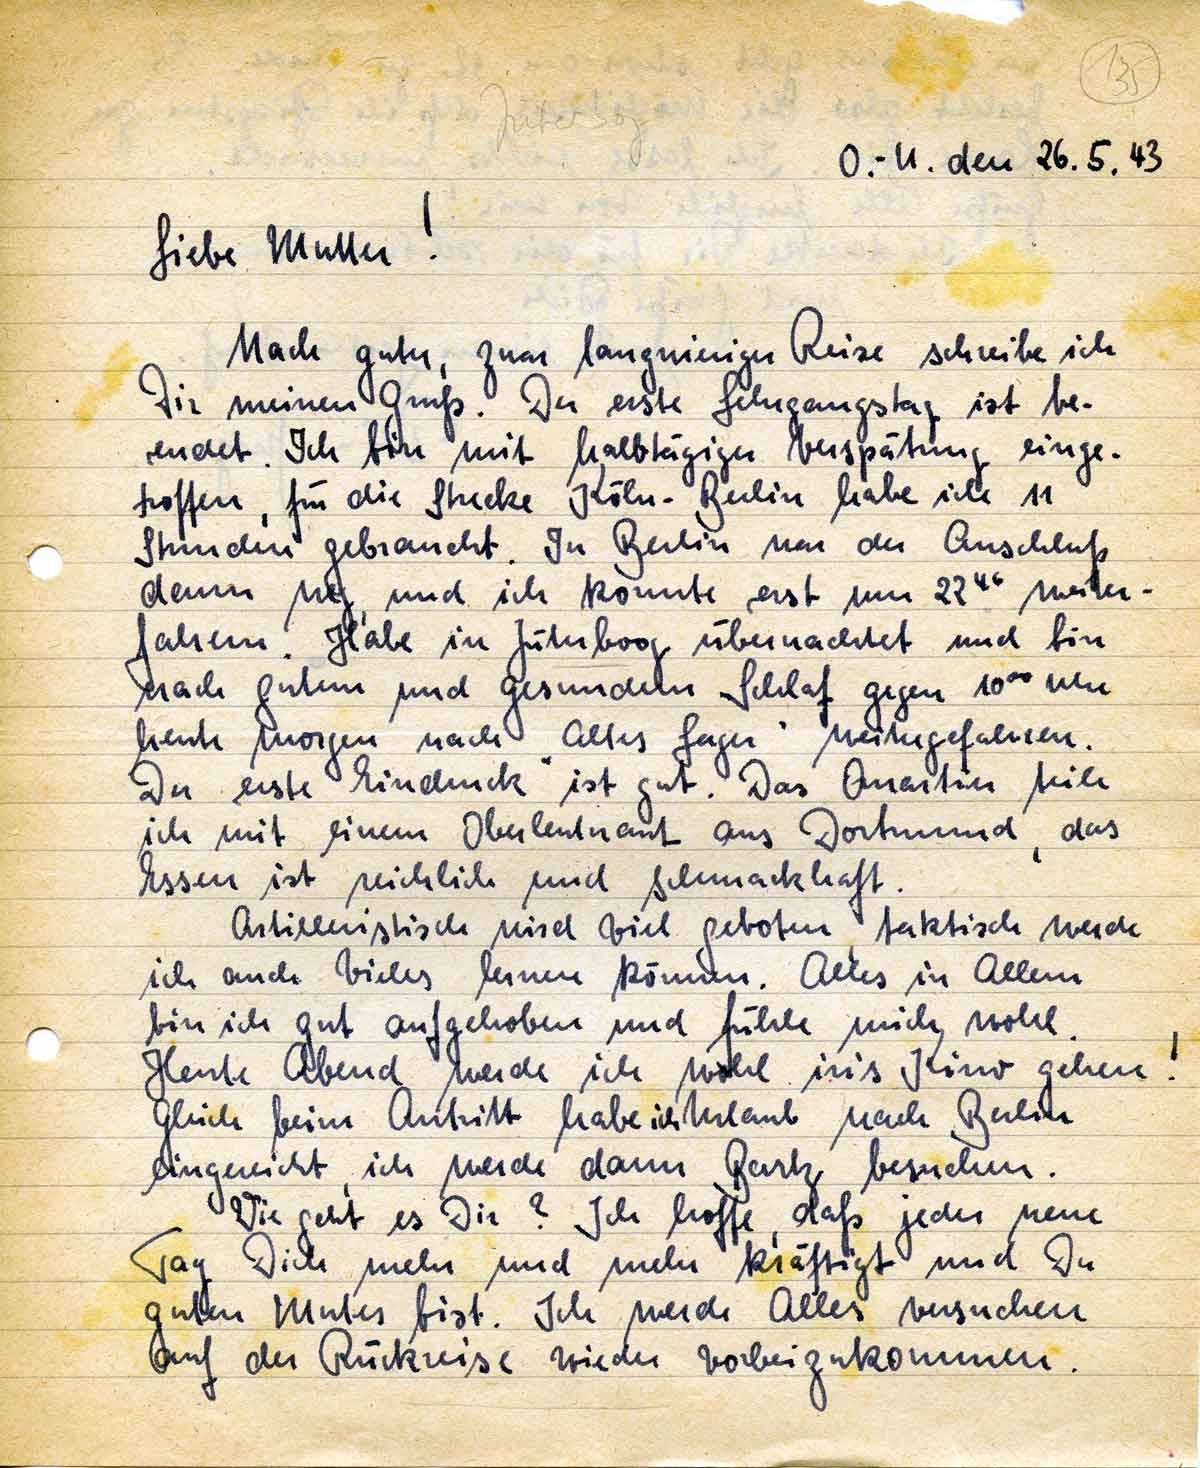 135
Jüterbog
O.-U. den 26.5.43
Liebe Mutter!
Nach guter, zwar langwieriger Reise schreibe ich
Dir meinen Gruß. Der erste Lehrgangstag ist be-
endet. Ich bin mit halbtägiger Verspätung einge-
troffen, für die Strecke Köln-Berlin habe ich 11
Stunden gebraucht. In Berlin war der Anschluß
dann weg, und ich konnte erst um 22⁴⁶ weiter-
fahren. Habe in Jüterbog übernachtet und bin
nach gutem und gesundem Schlaf gegen 10⁰⁰ Uhr
heute morgen nach "Altes Lager" weitergefahren.
Der erste Eindruck ist gut. Das Quartier teile
ich mit einem Oberleutnant aus Dortmund, das
Essen ist reichlich und schmackhaft.
Artilleristisch wird viel geboten, taktisch werde
ich auch Vieles lernen können. Alles in Allem
bin ich gut aufgehoben und fühle mich wohl.
Heute Abend werde ich wohl ins Kino gehen!
Gleich beim Antritt habe ich Urlaub nach Berlin
eingereicht, ich werde dann besuchen.
Wie geht es Dir? Ich hoffe, daß jeder neue
Tag Dich mehr und mehr kräftigt und Du
guten Mutes bist. Ich werde Alles versuchen
auf der Rückreise wieder vorbeizukommen.